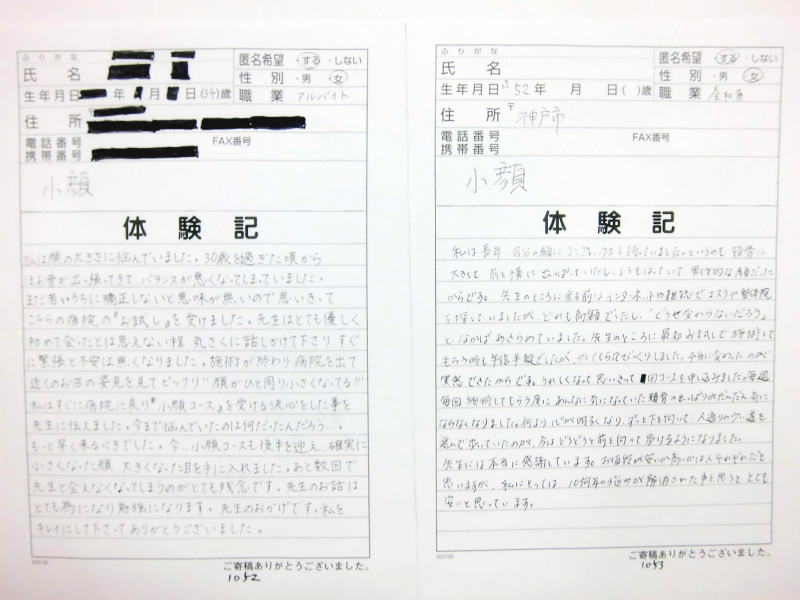 ふりがな
氏 名
匿名希望 ・する ・しない
性 別 ・男 ・女
生年月日 年 月 日(34)歳
職 業 アルバイト
住 所
電話番号 FAX番号
携帯番号
小顔
体 験 記
私は顔の大きさに悩んでいました。30歳を過ぎた頃から
ほお骨が出っ張ってきて、バランスが悪くなってしまっていました。
まだ若いうちに矯正しないと意味が無いので思いきって
こちらの病院の『お試し』を受けました。先生はとても優しく
初めて会ったとは思えない程 気さくに話しかけて下さり すぐ
に緊張と不安は無くなりました。施術が終わり病院を出て
近くのお店の姿見を見てビックリ!!顔がひと回り小さくなってる!!
私はすぐに病院に戻り『小顔コース』を受ける決心をした事を
先生に伝えました。今まで悩んでいたのは何だったんだろう…
もっと早く来るべきでした。今、小顔コースも後半を迎え、確実に
小さくなった顔 大きくなった目を手に入れました。あと数回で
先生と会えなくなってしまうのがとても残念です。先生のお話は
とても為になり勉強になります。先生のおかげです。私を
キレイにして下さってありがとうございました。
ご寄稿ありがとうございました。
1052
ふりがな
氏 名
匿名希望 ・する ・しない
性 別 ・男 ・女
生年月日 52年 月 日( )歳
職 業 会社員
住 所 〒 神戸市
電話番号 FAX番号
携帯番号
小顔
体 験 記
私は長年 自分の顔にコンプレックスを持っていました。というのも 頬骨が
大きくて 前と横に出っぱっていたし、エラもはっていて 男性的な顔だった
からです。先生のところに来る前はインターネットや雑誌でエステや整体院
を探していましたが、どれも高額でしたし、「どうせ変わらないだろう」
となかばあきらめていました。先生のところに最初お試しで施術して
もらう時も半信半疑でしたが、やってもらってびっくりしました。本当に変わったのが
実感できたからです。うれしくなって思いきって 回コースを申し込みました。毎週
毎回 施術してもらう度に あんなに気になっていた頬骨の出っぱりがだんだん気に
ならなくなりました。何より 心が明るくなり、ずっと下を向いて、人通りの少い道を
選んで歩いていたのが、今はどうどうと前を向って歩けるようになりました。
先生には本当に感謝しています。お値段が安いか高いかは人それぞれだと
思いますが、私にとっては 10何年の悩みが解消された事を思うと とても
安いと思っています。
ご寄稿ありがとうございました。
1053